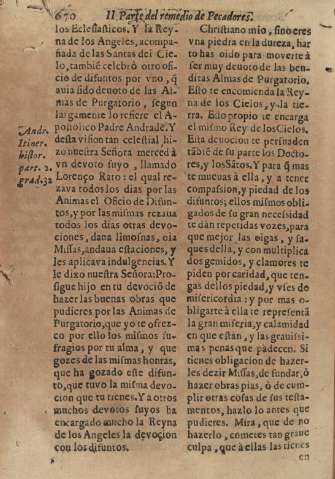 670 II. Parte del remedio de Pecadores.
los Eclesiasticos. Y la Rey-
na de los Angeles, acompa-
ñada de las Santas del Cie-
lo, tambiẽ celebrò otro ofi-
cio de difuntos por vno, q̃
auia sido deuoto de las Al-
mas de Purgatorio, segun
largamente lo refiere el A-
postolico Padre Andrade. Y
desta vision tan celestial hi-
zo nuestra Señora merced à
vn deuoto suyo, llamado
Lorenço Raro: el qual re-
zaua todos los dias por las
Animas el Oficio de Difun-
tos, y por las mismas rezaua
todos los dias otras deuo-
ciones, daua limosnas, oìa
Missas, andaua estaciones, y
les aplicava indulgencias. Y
le dixo nuestra Señora: Pro-
sigue hijo en tu devociõ de
hazer las buenas obras que
pudieres por las Animas de
Purgatorio, que yo te ofrez-
co por ello los mismos su-
fragios por tu alma, y que
gozes de las mismas honras,
que ha gozado este difun-
to, que tuvo la misma devo-
cion que tu tienes. Y a otros
muchos devotos suyos ha
encargado mucho la Reyna
de los Angeles la devocion
con los difuntos.
Andr.
Itiner.
histor.
part. 2.
grad. 32
Christiano mio, sino eres
vna piedra en la dureza, har
to has oido para moverte à
ser muy devoto de las ben-
ditas Almas de Purgatorio.
Esto te encomienda la Rey-
na de los Cielos, y la tie-
rra. Esto propio te encarga
el mismo Rey de los Cielos.
Esta deuocion te persuaden
tãbiẽ de su parte los Docto-
res, y los Sãtos. Y para q̃ mas
te mueuas à ella, y a tener
compassion, y piedad de los
difuntos; ellos mismos obli-
gados de su gran necessidad
te dàn repetidas vozes, para
que mejor las oigas, y sa-
ques della, y con multiplica
dos gemidos, y clamores te
piden por caridad, que ten-
gas dellos piedad, y vses de
misericordia: y por mas o-
bligarte à ella te representã
la gran miseria, y calamidad
en que estàn, y las grauissi-
mas penas que padecen. Si
tienes obligacion de hazer-
les dezir Missas, de fundar, ò
hazer obras pias, ò de cum-
plir otras cosas de sus testa-
mentos, hazlo lo antes que
pudieres. Mira, que de no
hazerlo, cometes tan graue
culpa, que à ellas las tienes
en